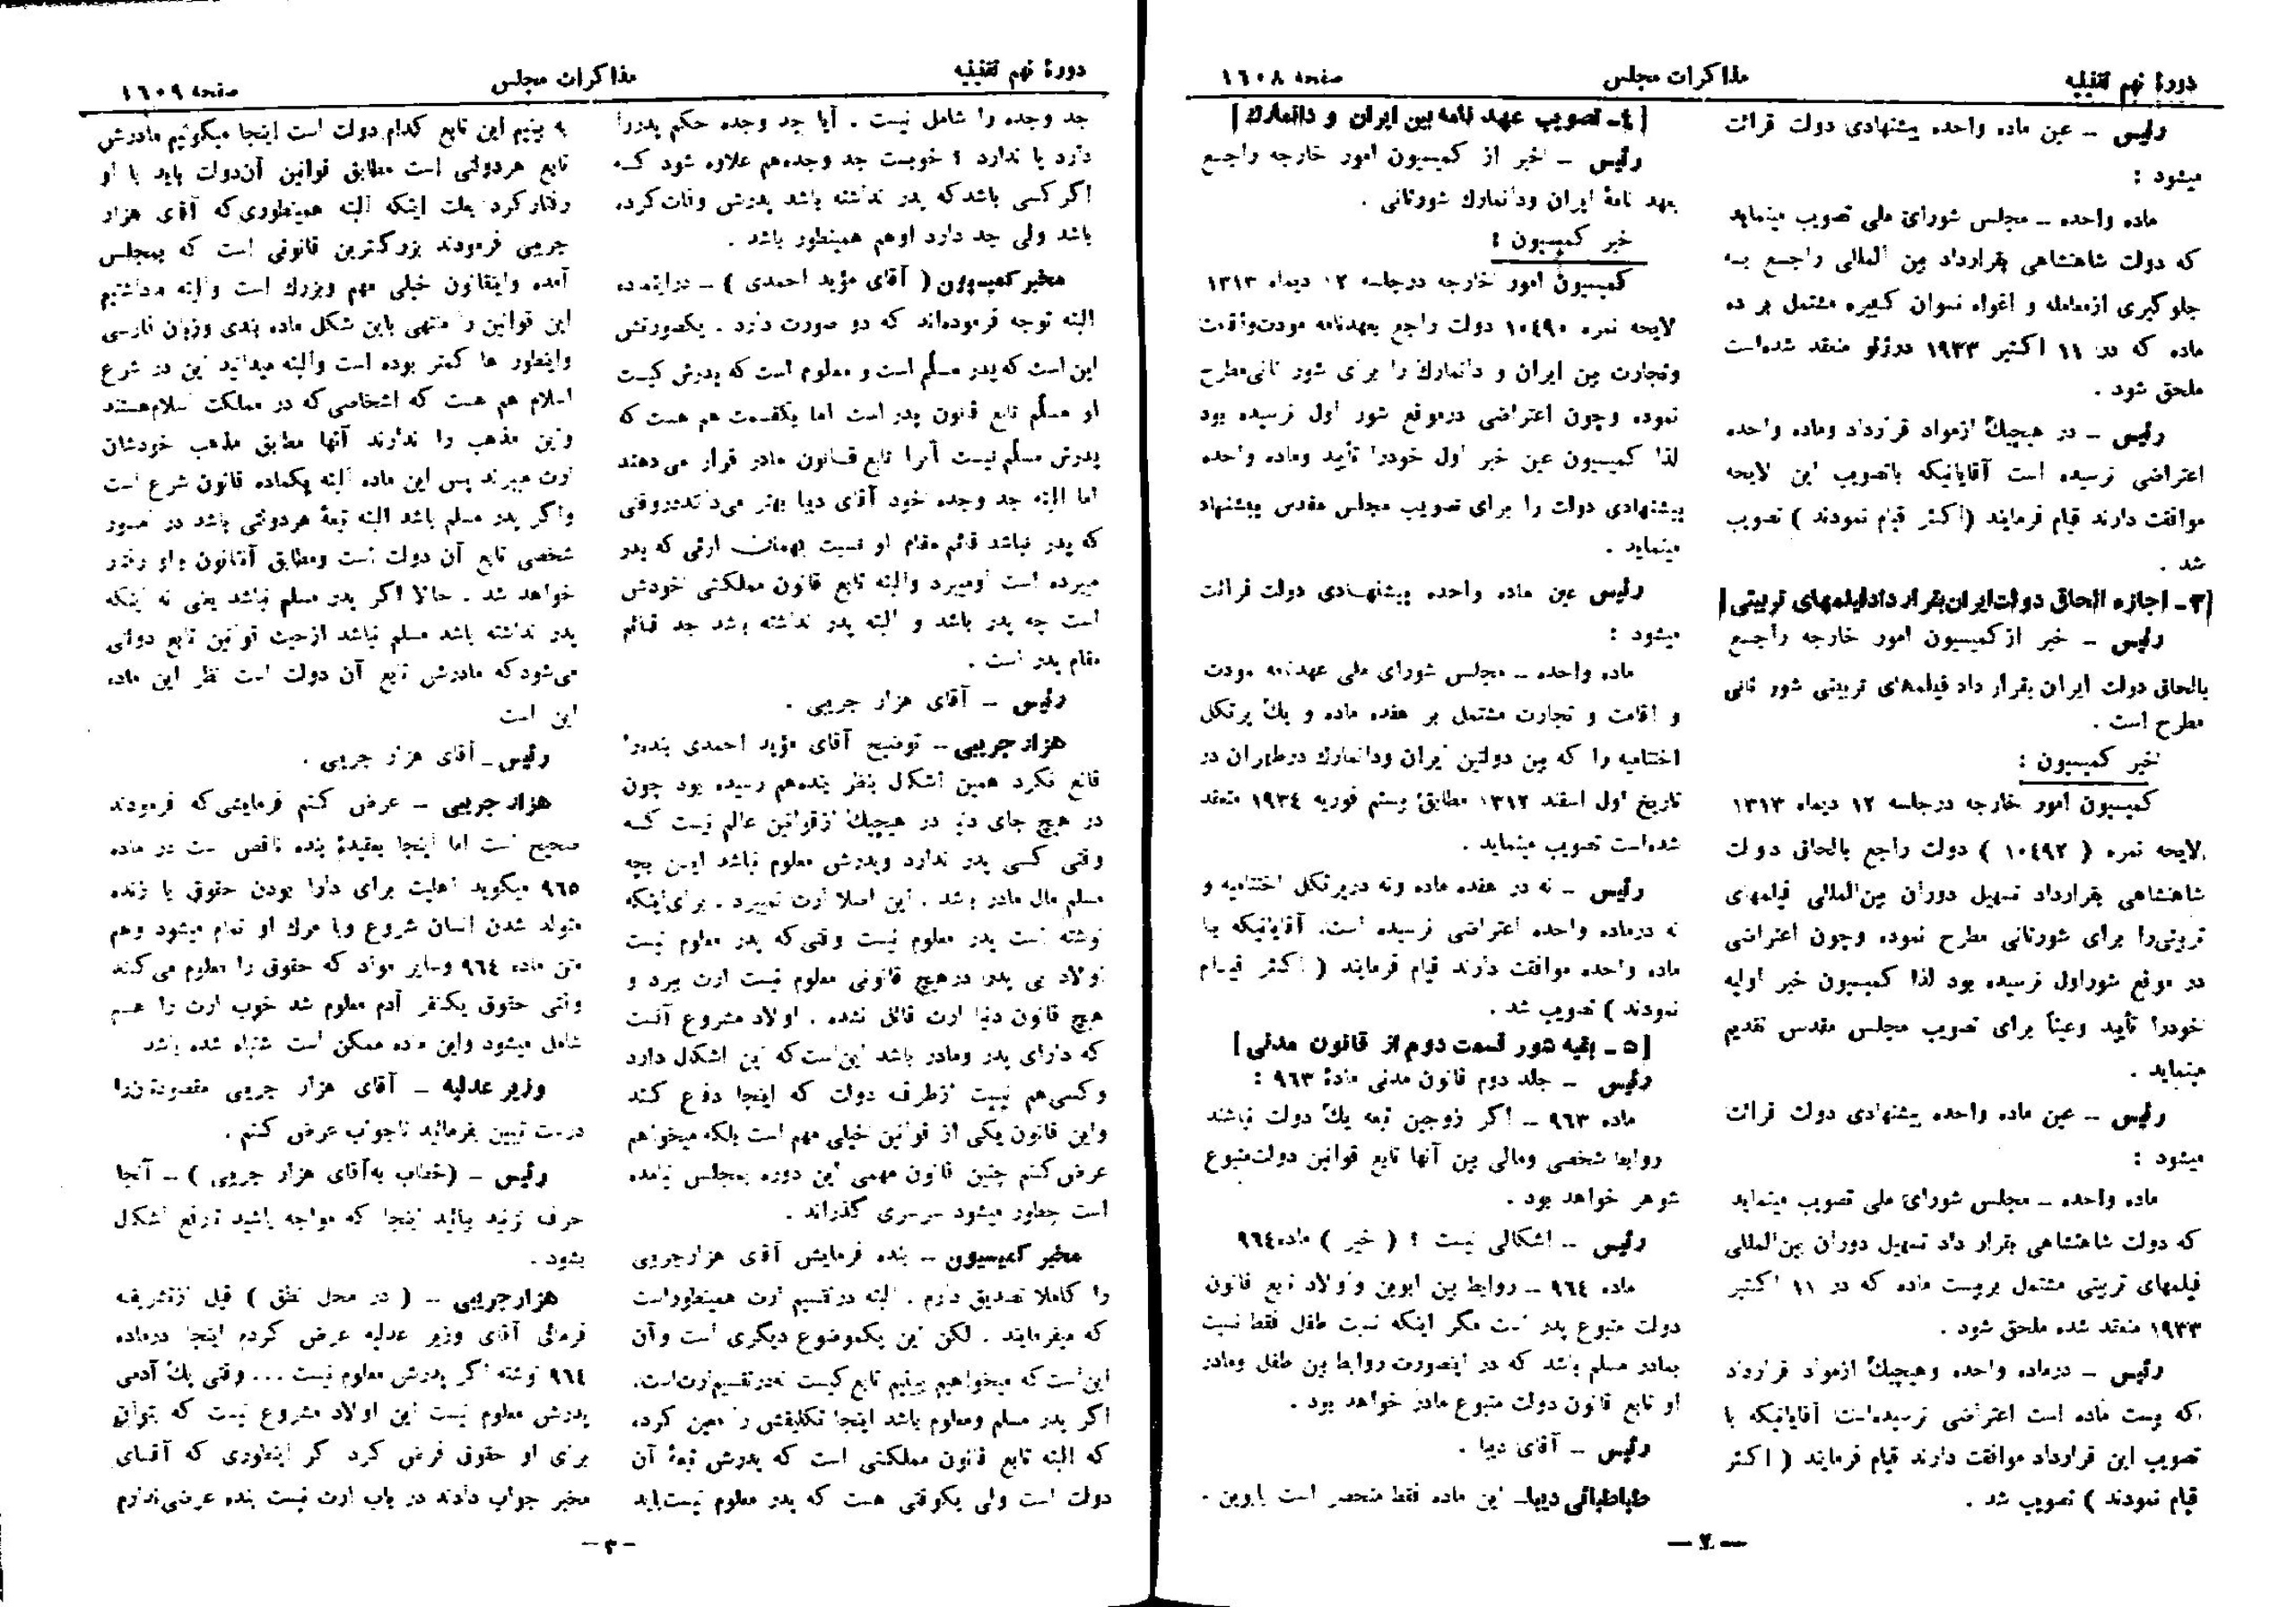 دورهٔ نهم تقنینیه
مذاکرات مجلس
صفحه ۱۶۰۸
رئیس – عین ماده واحده پیشنهادی دولت قرائت
میشود :
ماده واحده – مجلس شورای ملی تصویب مینماید
که دولت شاهنشاهی بقرارداد بین المللی راجع به
جلوگیری ازمعامله و اغواء نسوان کبیره مشتمل بر ده
ماده که در ۱۱ اکتبر ۱۹۳۳ درژنو منعقد شده‌است
ملحق شود .
رئیس – در هیچیک ازمواد قرارداد وماده واحده
اعتراضی نرسیده است آقایانیکه باتصویب این لایحه
موافقت دارند قیام فرمایند (اکثر قیام نمودند) تصویب
شد .
[۳- اجازه الحاق دولت ایران بقرارداد فیلمهای تربیتی]
رئیس – خبر از کمیسیون امور خارجه راجع
بالحاق دولت ایران بقرار داد فیلمهای تربیتی شور ثانی
مطرح است .
خبر کمیسیون :
کمیسیون امور خارجه درجلسه ۱۲ دیماه ۱۳۱۳
لایحه نمره ( ۱۰۴۹۲ ) دولت راجع بالحاق دولت
شاهنشاهی بقرارداد تسهیل دوران بین‌المللی فیلمهای
تربیتی‌را برای شورثانی مطرح نموده وچون اعتراضی
در موقع شوراول نرسیده بود لذا کمیسیون خبر اولیه
خودرا تأیید وعیناً برای تصویب مجلس مقدس تقدیم
مینماید .
رئیس – عین ماده واحده پیشنهادی دولت قرائت
میشود :
ماده واحده – مجلس شورای ملی تصویب مینماید
که دولت شاهنشاهی بقرار داد تسهیل دوران بین‌المللی
فیلمهای تربیتی مشتمل بربیست ماده که در ۱۱ اکتبر
۱۹۳۳ منعقد شده ملحق شود .
رئیس – درماده واحده وهیچیک ازمواد قرارداد
که بیست ماده است اعتراضی نرسیده‌است آقایانیکه با
تصویب این قرارداد موافقت دارند قیام فرمایند ( اکثر
قیام نمودند ) تصویب شد .
[۴- تصویب عهد نامه بین ایران و دانمارک]
رئیس – خبر از کمیسیون امور خارجه راجع
بعهد نامهٔ ایران ودانمارک شورثانی .
خبر کمیسیون :
کمیسیون امور خارجه درجلسه ۱۲ دیماه ۱۳۱۳
لایحه نمره ۱۰۴۹۰ دولت راجع بعهدنامه مودت‌واقامت
وتجارت بین ایران و دانمارک را برای شور ثانی‌مطرح
نموده وچون اعتراضی درموقع شور اول نرسیده بود
لذا کمیسیون عین خبر اول خودرا تأیید وماده واحده
پیشنهادی دولت را برای تصویب مجلس مقدس پیشنهاد
مینماید .
رئیس عین ماده واحده پیشنهادی دولت قرائت
میشود :
ماده واحده – مجلس شورای ملی عهدنامه مودت
و اقامت و تجارت مشتمل بر هفده ماده و یک پرتکل
اختتامیه را که بین دولتین ایران ودانمارک درطهران در
تاریخ اول اسفند ۱۳۱۲ مطابق بیستم فوریه ۱۹۳۴ منعقد
شده‌است تصویب مینماید .
رئیس – نه در هفده ماده ونه درپرتکل اختتامیه و
نه درماده واحده اعتراضی نرسیده است. آقایانیکه با
ماده واحده موافقت دارند قیام فرمایند ( اکثر قیام
نمودند ) تصویب شد .
[۵ – بقیه شور قسمت دوم از قانون مدنی]
رئیس – جلد دوم قانون مدنی مادهٔ ۹۶۳ :
ماده ۹۶۳ – اگر زوجین تبعه یک دولت نباشند
روابط شخصی ومالی بین آنها تابع قوانین دولت‌متبوع
شوهر خواهد بود .
رئیس – اشکالی نیست ؟ ( خیر ) ماده۹۶۴
ماده ۹۶۴ – روابط بین ابوین واولاد تابع قانون
دولت متبوع پدر است مگر اینکه نسبت طفل فقط نسبت
بمادر مسلم باشد که در اینصورت روابط بین طفل ومادر
او تابع قانون دولت متبوع مادر خواهد بود .
رئیس – آقای دیبا .
طباطبائی دیبا– این ماده فقط منحصر است بابوین .
– ۲ –
دورهٔ نهم تقنینیه
مذاکرات مجلس
صفحه ۱۶۰۹
جد وجده را شامل نیست . آیا جد وجده حکم پدررا
دارد یا ندارد ؟ خوبست جد وجده‌هم علاوه شود که
اگر کسی باشدکه پدر نداشته باشد پدرش وفات‌کرده
باشد ولی جد دارد اوهم همینطور باشد .
مخبر کمیسیون ( آقای مؤید احمدی ) – دراینماده
البته توجه فرموده‌اند که دو صورت دارد . یکصورتش
این است که پدر مسلّم است و معلوم است که پدرش کیست
او مسلّم تابع قانون پدر است اما یکقسمت هم هست که
پدرش مسلّم نیست آنرا تابع قانون مادر قرار می‌دهند
اما البته جد وجده خود آقای دیبا بهتر می‌دانند‌وقتی
که پدر نباشد قائم مقام او نسبت بهمان ارثی که پدر
میبرده است اومیبرد والبته تابع قانون مملکتی خودش
است چه پدر باشد و البته پدر نداشته باشد جد قائم
مقام پدر است .
رئیس – آقای هزار جریبی .
هزارجریبی – توضیح آقای مؤید احمدی بنده‌را
قانع نکرد همین اشکال بنظر بنده‌هم رسیده بود چون
در هیچ جای دنیا در هیچیک ازقوانین عالم نیست که
وقتی کسی پدر ندارد وپدرش معلوم نباشد این بچه
مسلم مال مادر باشد . این اصلا ارث نمیبرد . برای‌اینکه
نوشته است پدر معلوم نیست وقتی‌که پدر معلوم نیست
اولاد بی پدر، درهیچ قانونی معلوم نیست ارث ببرد و
هیچ قانون دنیا ارث قائل نشده . اولاد مشروع آنست
که دارای پدر ومادر باشد این‌است‌که این اشکال دارد
وکسی‌هم نیست ازطرف دولت که اینجا دفع کند
واین قانون یکی از قوانین خیلی مهم است بلکه میخواهم
عرض‌کنم چنین قانون مهمی این دوره بمجلس نیامده
است چطور میشود سرسری گذراند .
مخبر کمیسیون – بنده فرمایش آقای هزارجریبی
را کاملا تصدیق دارم . البته درتقسیم ارث همینطوراست
که میفرمایند . لکن این یک‌موضوع دیگری است وآن
این‌است‌که میخواهیم ببینیم تابع کیست نه‌درتقسیم‌ارث‌است.
اگر پدر مسلم ومعلوم باشد اینجا تکلیفش را معین کرده
که البته تابع قانون مملکتی است که پدرش تبعهٔ آن
دولت است ولی یکوقتی هست که پدر معلوم نیست‌باید
ببینیم این تابع کدام دولت است اینجا میگوئیم مادرش
تابع هردولتی است مطابق قوانین آن‌دولت باید با او
رفتارکرد بعلت اینکه البته همینطوری‌که آقای هزار
جریبی فرمودند بزرگترین قانونی است که بمجلس
آمده واینقانون خیلی مهم وبزرک است والبته مداشتیم
این قوانین را منتهی باین شکل ماده بندی وزبان فارسی
واینطور ها کمتر بوده است والبته میدانید این در شرع
اسلام هم هست که اشخاصی‌که در مملکت اسلام‌هستند
واین مذهب را ندارند آنها مطابق مذهب خودشان
ارث میبرند پس این ماده البته یکماده قانون شرع است
واگر پدر مسلم باشد البته تبعهٔ هردولتی باشد در امور
شخصی تابع آن دولت است ومطابق آنقانون باو رفتار
خواهد شد . حالا اگر پدر مسلم نباشد یعنی نه اینکه
پدر نداشته باشد مسلم نباشد ازحیث قوانین تابع دولتی
می‌شود‌که مادرش تابع آن دولت است نظر این ماده
این است
رئیس – آقای هزار جریبی .
هزارجریبی – عرض کنم فرمایشی‌که فرمودند
صحیح است اما اینجا بعقیدهٔ بنده ناقص است در ماده
۹۶۵ میگوید اهلیت برای دارا بودن حقوق با زنده
متولد شدن انسان شروع وبا مرک او تمام میشود وهم
متن ماده ۹۶۴ وسایر مواد که حقوق را معلوم می‌کند
وقتی حقوق یکنفر آدم معلوم شد خوب ارث را هم
شامل میشود واین ماده ممکن است اشتباه شده باشد
وزیر عدلیه – آقای هزار جریبی مقصودتان‌را
درست تبیین بفرمائید تاجواب عرض کنم .
رئیس – (خطاب به‌آقای هزار جریبی ) – آنجا
حرف نزنید بیائید اینجا که مواجه باشید تارفع اشکال
بشود .
هزارجریبی – ( در محل نطق ) قبل ازتشریف
فرمائی آقای وزیر عدلیه عرض کردم اینجا درماده
۹۶۴ نوشته اگر پدرش معلوم نیست ... وقتی یک آدمی
پدرش معلوم نیست این اولاد مشروع نیست که بتوان
برای او حقوق فرض کرد مگر اینطوری که آقای
مخبر جواب دادند در باب ارث نیست بنده عرضی‌ندارم
– ۳ –